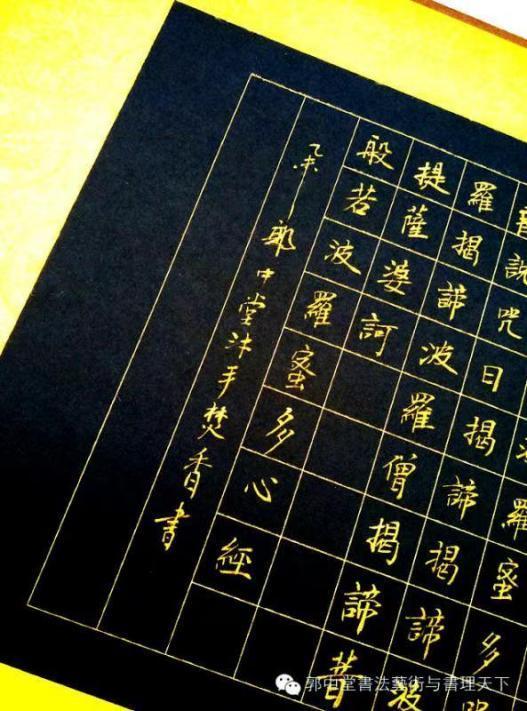 羅蜜多咒
說咒曰揭諦揭諦波
羅揭諦波羅僧揭諦菩
提薩婆訶
般若波羅蜜多心經
乙未郭中堂沐手焚香書
郭中堂書法藝術与書理天下